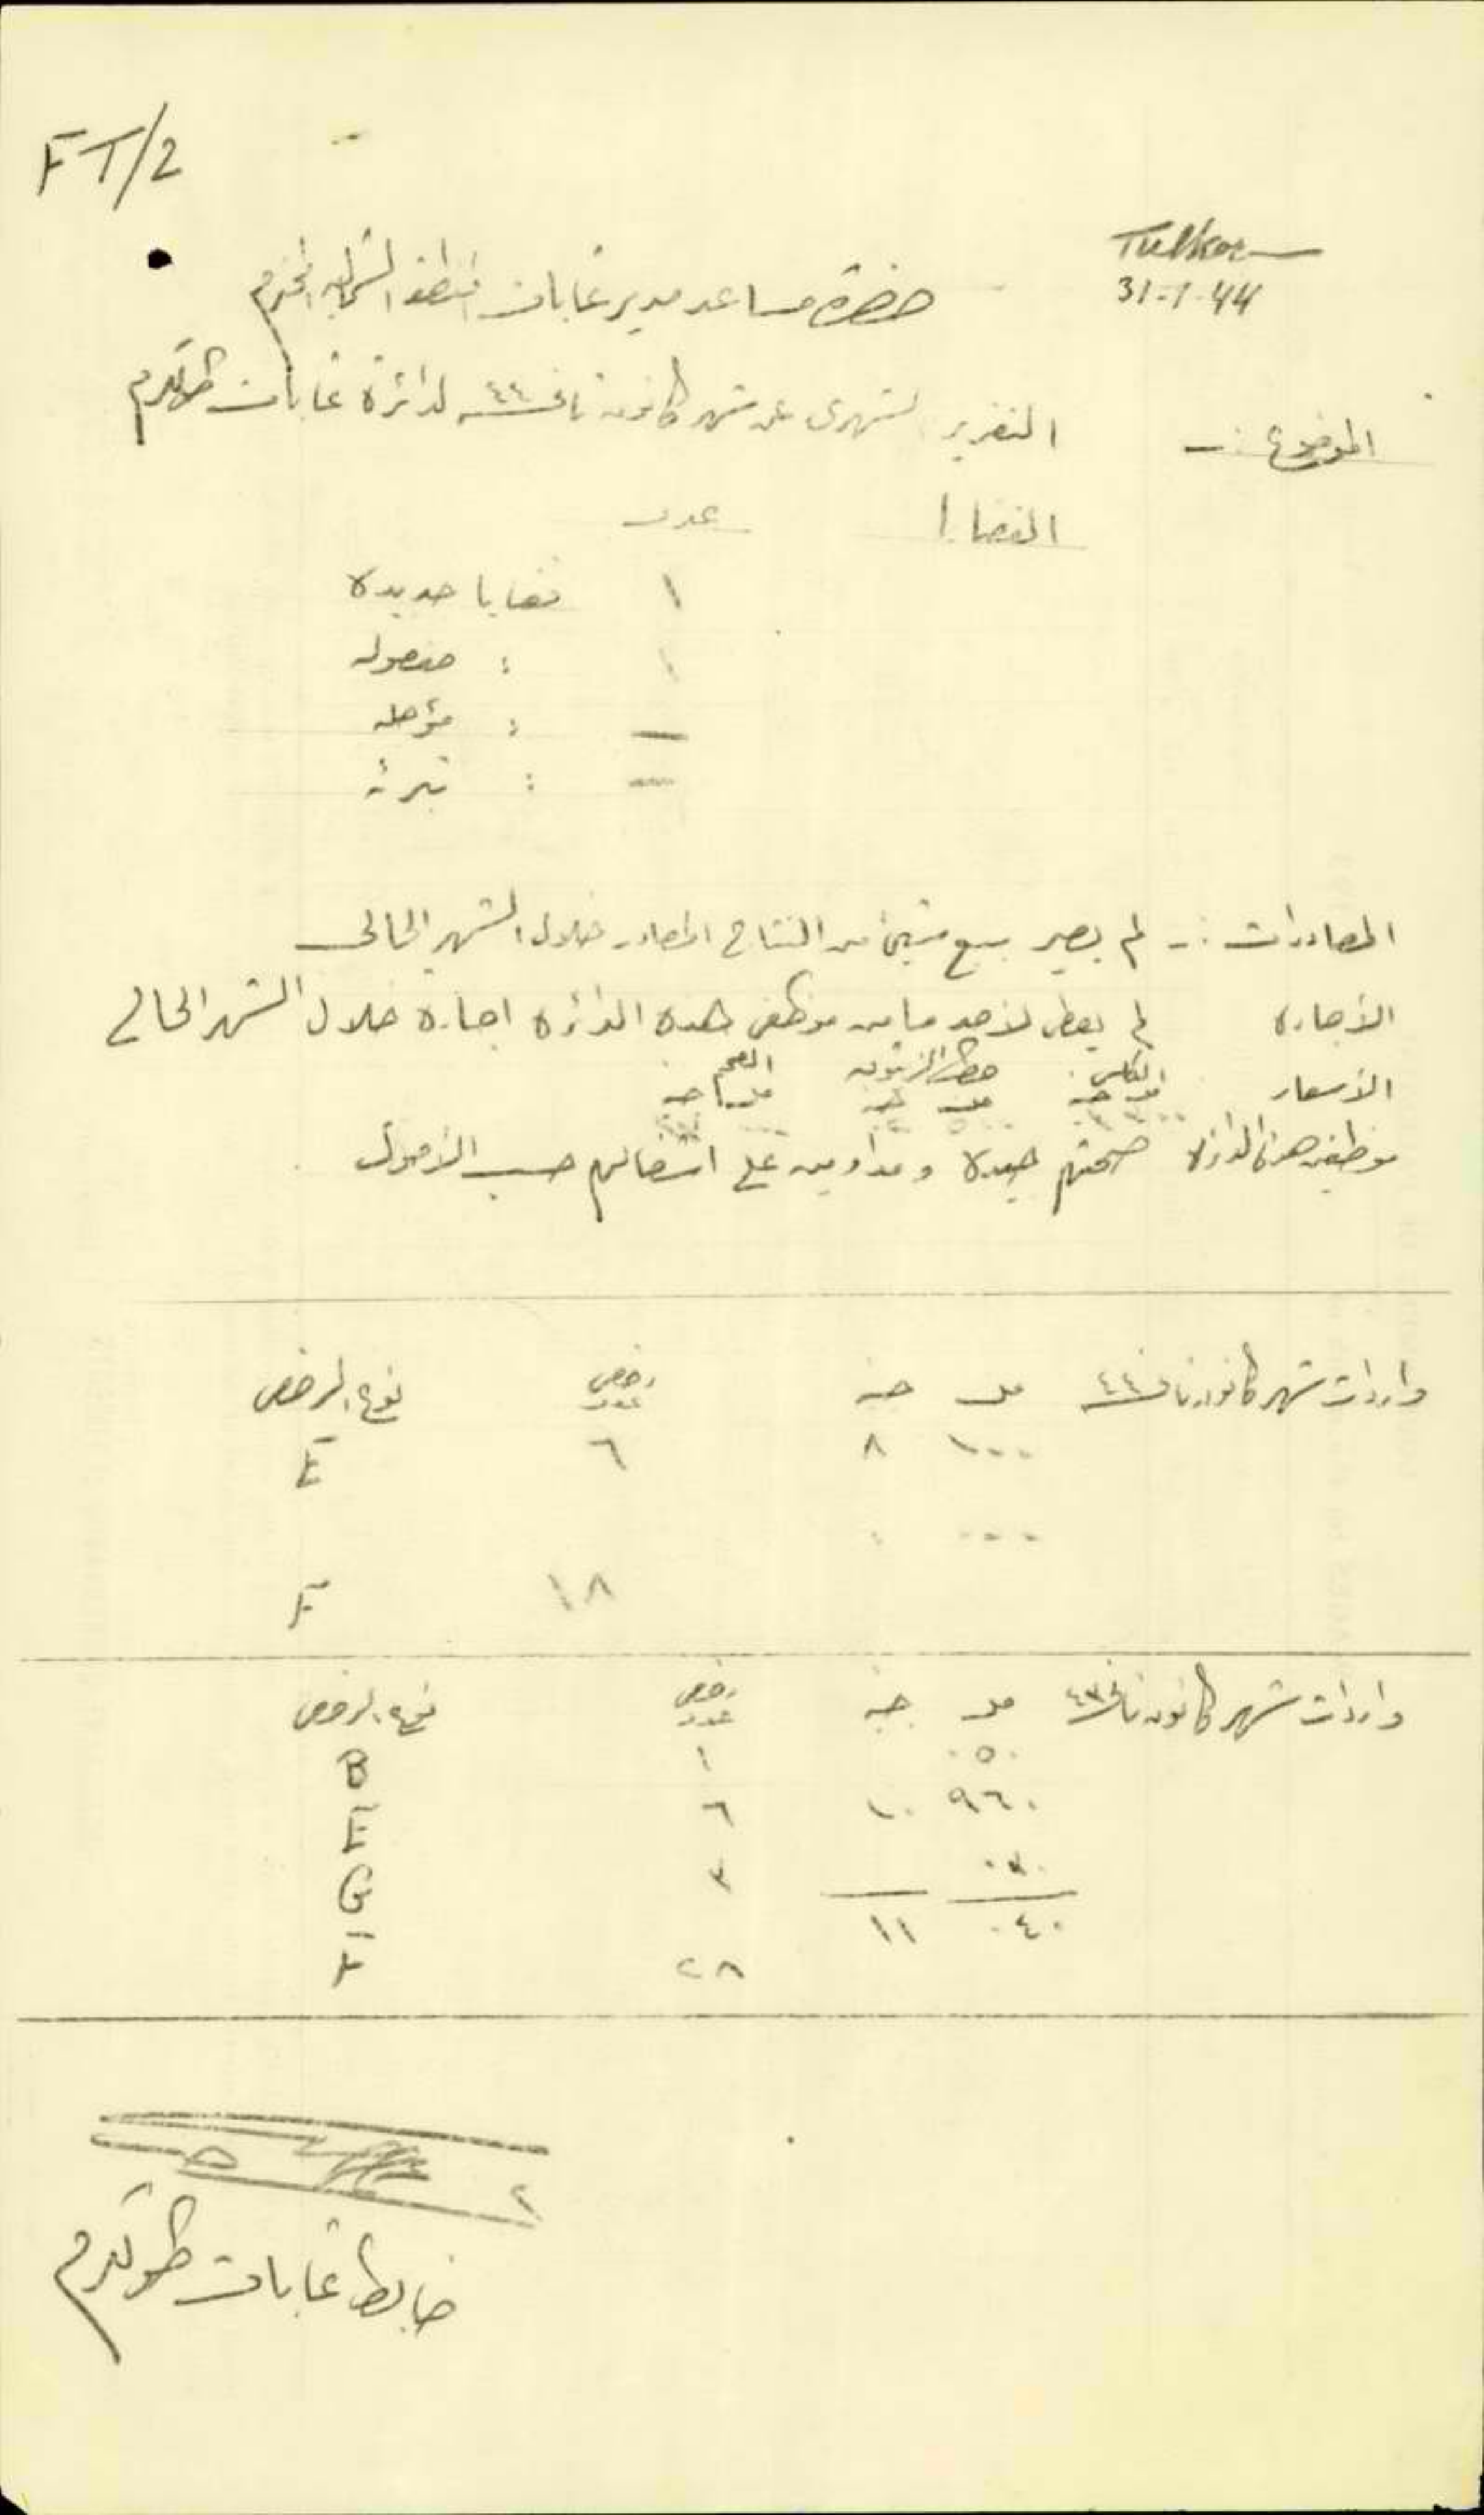 FT/2
Tulkarm
31-1-44
حضرة مساعد مدير غابات المنطقة الشمالية المحترم
الموضوع :- التقرير الشهري عن شهر كانون ثاني سنة ٤٤ لدائرة غابات طولكرم
القضايا عدد
١ قضايا جديدة
١ : مفصوله
— : مؤجله
— : تبرئة
المصادرات :- لم يصير بيع شيئ من النتاج المصادر خلال الشهر الحالي
الأجازه لم يعطى لاحد ما من موظفي هذه الدائرة اجازة خلال الشهر الحالي
الأسعار الكلس حطب الزيتون الفحم
مل جنيه مل جنيه مل جنيه
موظفين هذه الدائرة صحتهم جيدة ومداومين على اشغالهم حسب الأصول
واردات شهر كانون ثاني سنة ٤٤ مل جنيه رخص عدد نوع الرخص
١٠٠ ٨ ٦ E
١٨ F
واردات شهر كانون ثاني سنة ٤٣ مل جنيه رخص عدد نوع الرخص
٠٥٠ ١ B
٩٦٠ ١٠ ٦ E
٠٣٠ ٣ G
٠٤٠ ١١
٢٨ F
ضابط غابات طولكرم